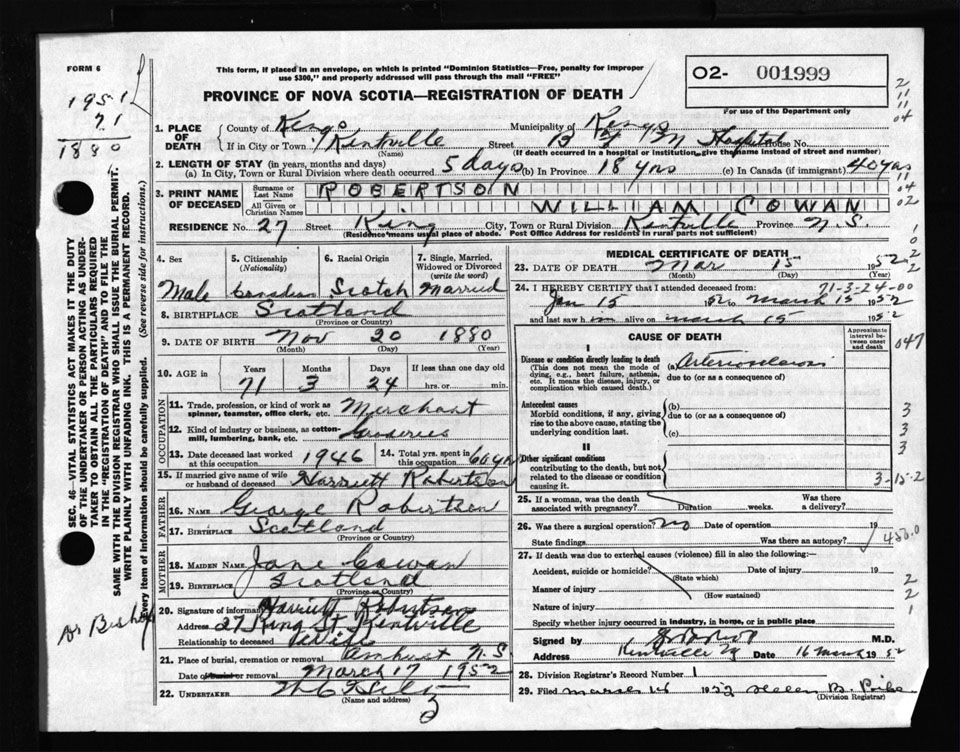 FORM 6
This form, if placed in an envelope, on which is printed "Dominion Statistics—Free, penalty for improper use $300," and properly addressed will pass through the mail "FREE"
PROVINCE OF NOVA SCOTIA—REGISTRATION OF DEATH
02- 001999
For use of the Department only
1951
71
1880
1. PLACE OF DEATH
County of Kings Municipality of Kings
If in City or Town Kentville (Name) Street B F M Hospital House No.
(If death occurred in a hospital or institution, give the name instead of street and number)
2. LENGTH OF STAY (in years, months and days)
(a) In City, Town or Rural Division where death occurred 5 days (b) In Province 18 yrs (c) In Canada (if immigrant) 40 yrs
3. PRINT NAME OF DECEASED
Surname or Last Name ROBERTSON
All Given or Christian Names WILLIAM COWAN
RESIDENCE No. 27 Street King City, Town or Rural Division Kentville Province N.S.
(Residence means usual place of abode. Post Office Address for residents in rural parts not sufficient)
4. Sex
Male
5. Citizenship (Nationality)
Canadian
6. Racial Origin
Scotch
7. Single, Married, Widowed or Divorced (write the word)
Married
8. BIRTHPLACE Scotland
(Province or Country)
9. DATE OF BIRTH Nov 20 1880
(Month) (Day) (Year)
10. AGE in Years Months Days If less than one day old
71 3 24 hrs. or min.
OCCUPATION
11. Trade, profession, or kind of work as spinner, teamster, office clerk, etc. Merchant
12. Kind of industry or business, as cotton-mill, lumbering, bank, etc. Groceries
13. Date deceased last worked at this occupation 1946
14. Total yrs. spent in this occupation 60 yrs
15. If married give name of wife or husband of deceased Harriett Robertson
FATHER
16. Name George Robertson
17. Birthplace Scotland
(Province or Country)
MOTHER
18. MAIDEN NAME Jane Cowan
19. BIRTHPLACE Scotland
(Province or Country)
20. Signature of informant Harriett Robertson
Address 27 King St Kentville
Relationship to deceased Wife
21. Place of burial, cremation or removal Amherst N.S
Date of burial or removal March 17 1952
22. UNDERTAKER
(Name and address)
MEDICAL CERTIFICATE OF DEATH
23. DATE OF DEATH Mar 15 1952
(Month) (Day) (Year)
71-3-24-00
24. I HEREBY CERTIFY that I attended deceased from:
Jan 15 52 to March 15 1952
and last saw him alive on March 15 1952
CAUSE OF DEATH
Approximate interval between onset and death
I
Disease or condition directly leading to death
(This does not mean the mode of dying, e.g., heart failure, asthenia, etc. It means the disease, injury, or complication which caused death.)
(a) Arteriosclerosis
due to (or as a consequence of)
Antecedent causes
Morbid conditions, if any, giving rise to the above cause, stating the underlying condition last.
(b)
due to (or as a consequence of)
(c)
II
Other significant conditions contributing to the death, but not related to the disease or condition causing it.
3-15-2
25. If a woman, was the death associated with pregnancy? Duration weeks. Was there a delivery?
26. Was there a surgical operation? No Date of operation 19
State findings Was there an autopsy?
450.0
27. If death was due to external causes (violence) fill in also the following:—
Accident, suicide or homicide? (State which) Date of injury 19
Manner of injury (How sustained)
Nature of injury
Specify whether injury occurred in industry, in home, or in public place
Signed by M.D.
Address Kentville Date 16 March 1952
28. Division Registrar's Record Number 1
29. Filed March 1952 Helen B.
(Division Registrar)
SEC. 46 VITAL STATISTICS ACT MAKES IT THE DUTY OF THE UNDERTAKER OR PERSON ACTING AS UNDERTAKER TO OBTAIN ALL THE PARTICULARS REQUIRED IN THE "REGISTRATION OF DEATH" AND TO FILE THE SAME WITH THE DIVISION REGISTRAR WHO SHALL ISSUE THE BURIAL PERMIT.
WRITE PLAINLY WITH UNFADING INK. THIS IS A PERMANENT RECORD.
Every item of information should be carefully supplied. (See reverse side for instructions.)
Dr Bishop
2
11
11
04
11
04
02
047
3
3
3
2
2
1